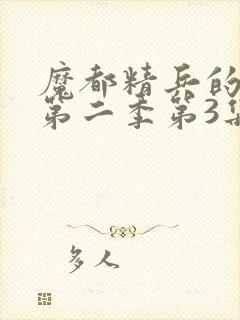 魔都精兵的
第二季第3集
多人